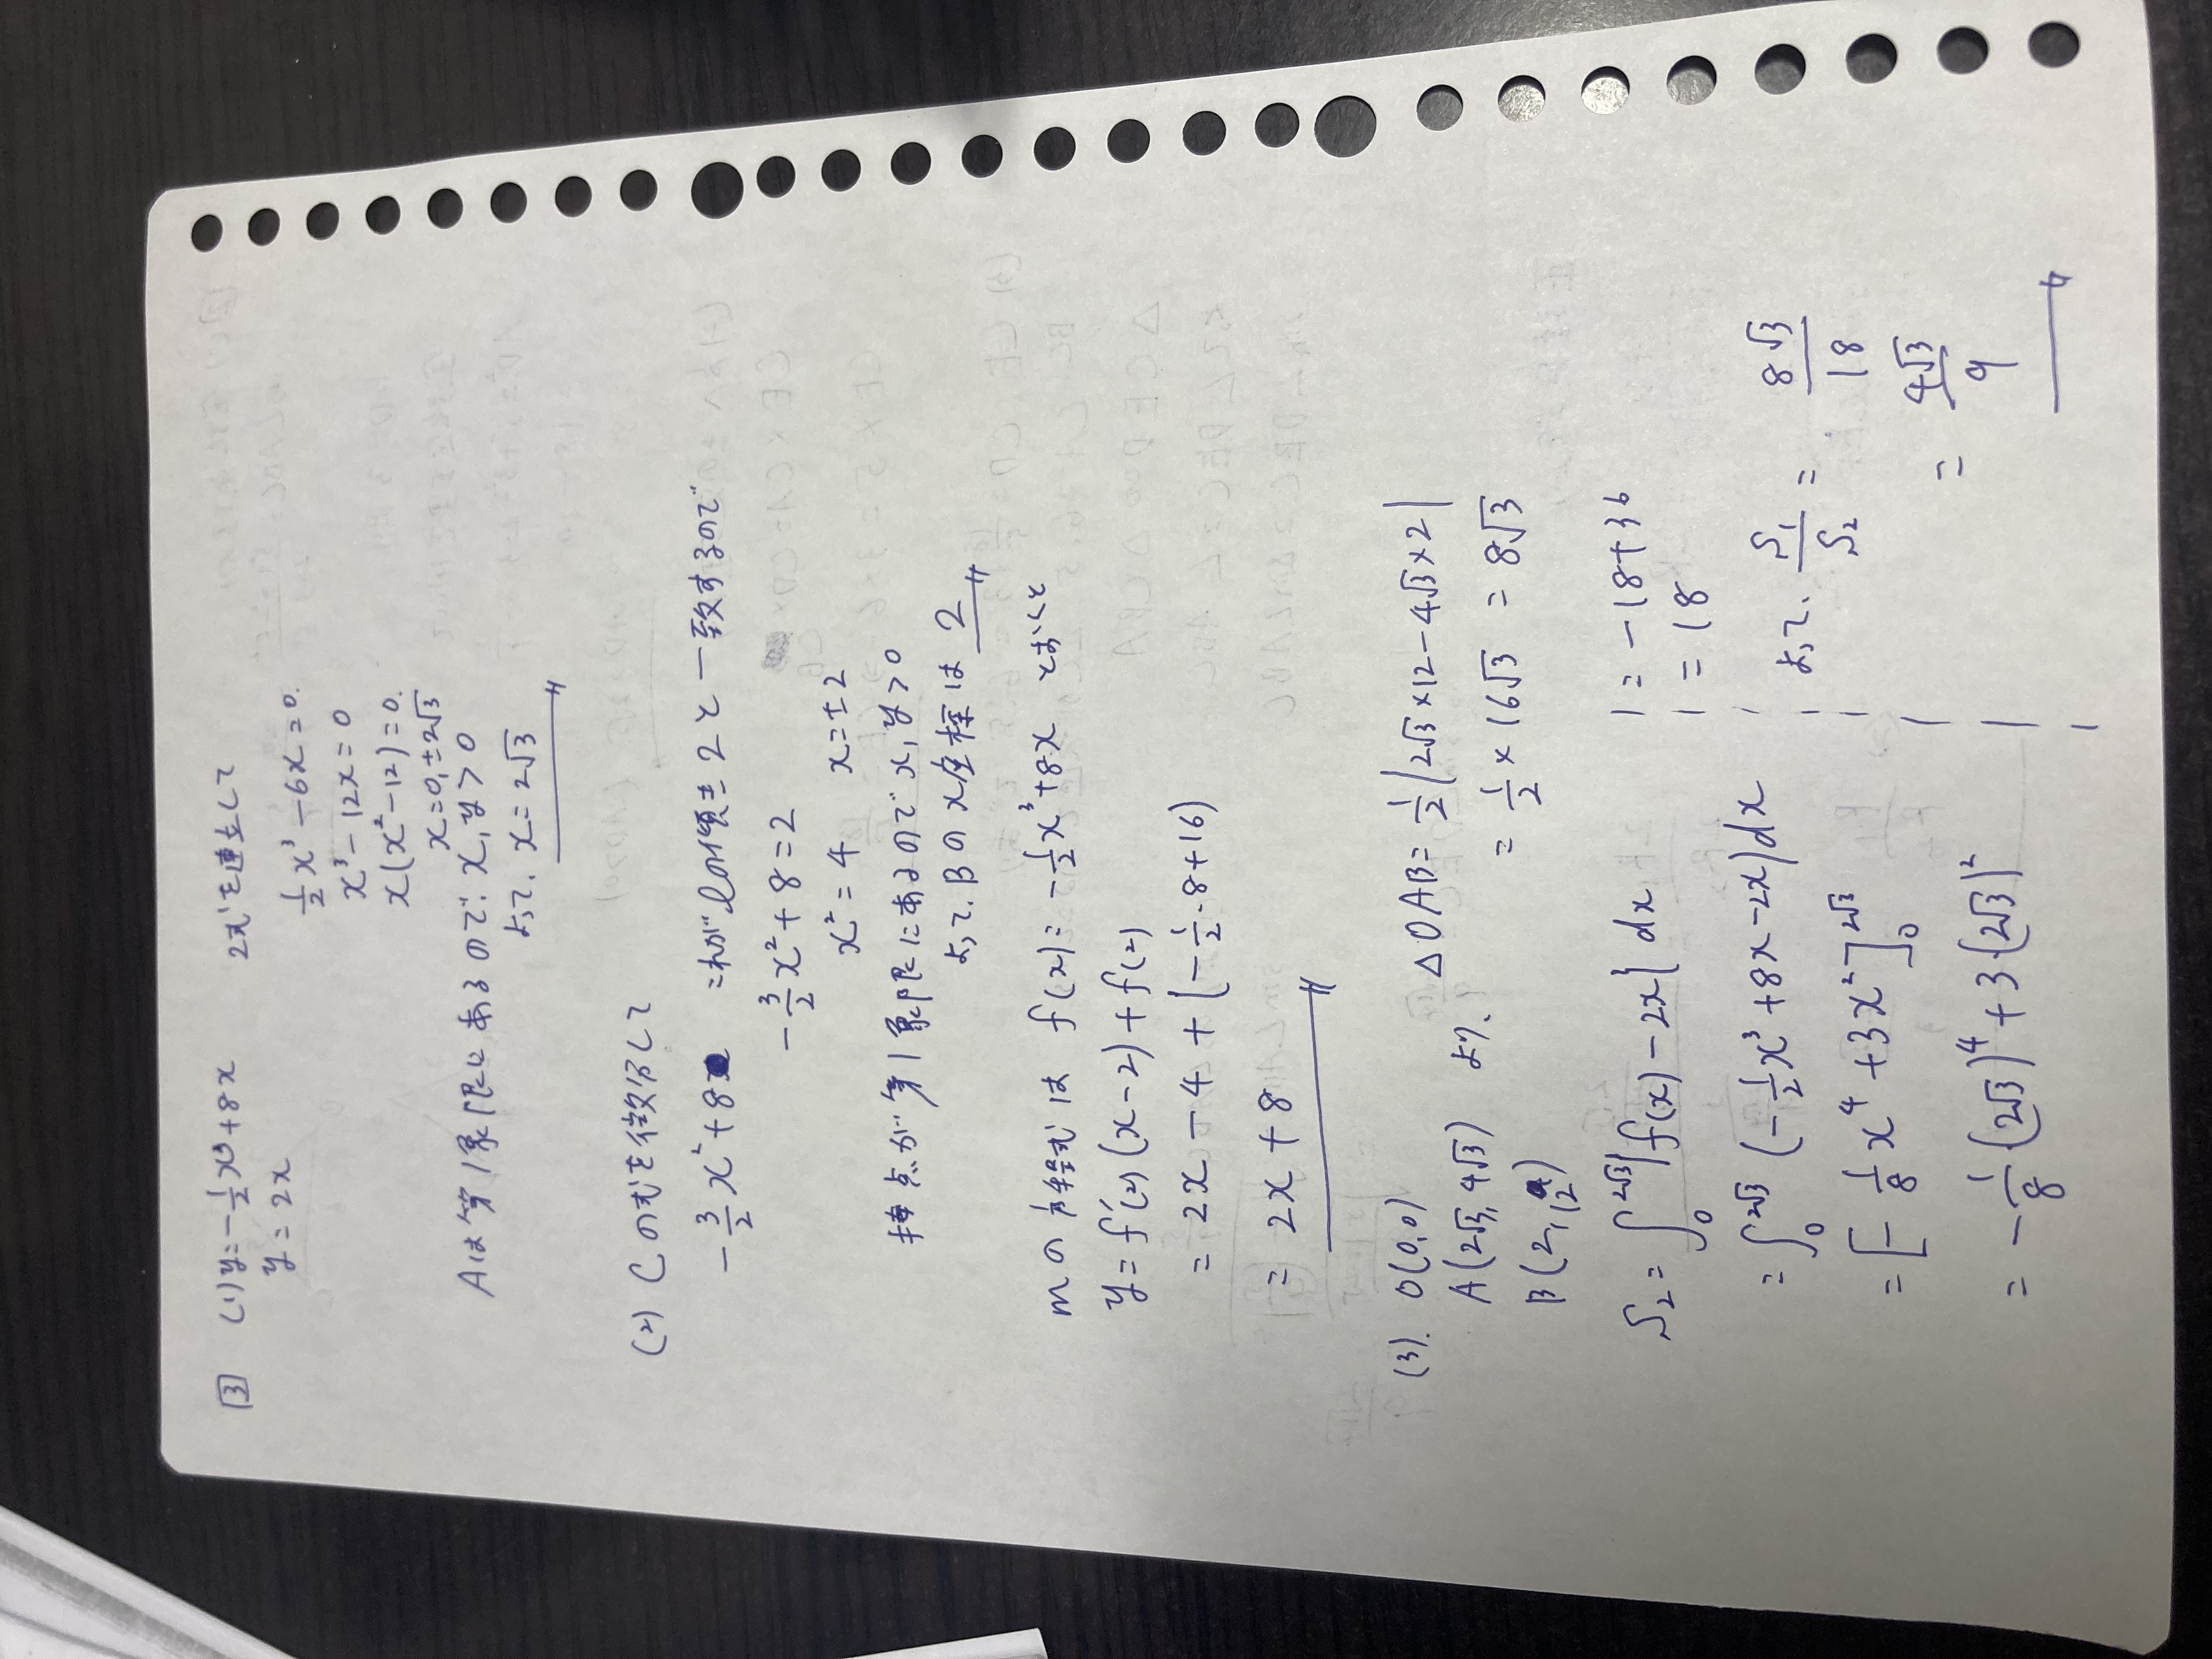 3 (1) y=-1/2x³+8x 2式を連立して
y=2x
1/2x³-6x=0.
x³-12x=0
x(x²-12)=0.
x=0,±2√3
Aは第1象限にあるので x,y>0
よって、x=2√3
(2) Cの式を微分して
-3/2x²+8 これがlの傾き2と一致するので
-3/2x²+8=2
x²=4 x=±2
接点が第1象限にあるので x,y>0
よって、Bのx座標は 2
mの方程式は f(x)=-1/2x³+8x とおくと
y=f'(2)(x-2)+f(2)
=2x-4+(-1/2·8+16)
=2x+8
(3). O(0,0)
A(2√3,4√3) より、 △OAB=1/2|2√3×12-4√3×2|
B(2,12)
=1/2×16√3=8√3
S₂=∫₀^2√3{f(x)-2x}dx
=∫₀^2√3(-1/2x³+8x-2x)dx
=[-1/8x⁴+3x²]₀^2√3
=-1/8(2√3)⁴+3(2√3)²
=-18+36
=18
よって、S₁/S₂=8√3/18
=4√3/9